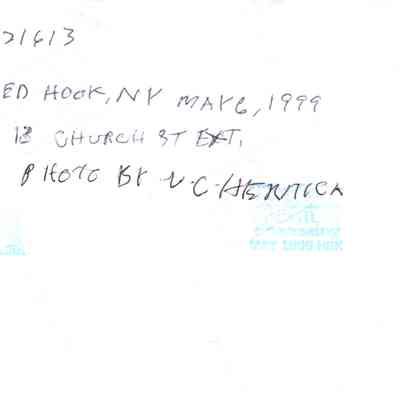 21613
ED HOOK, NY MAY 6, 1999
13 CHURCH ST EXT.
PHOTO BY V.C.
MAY 1999 NBK